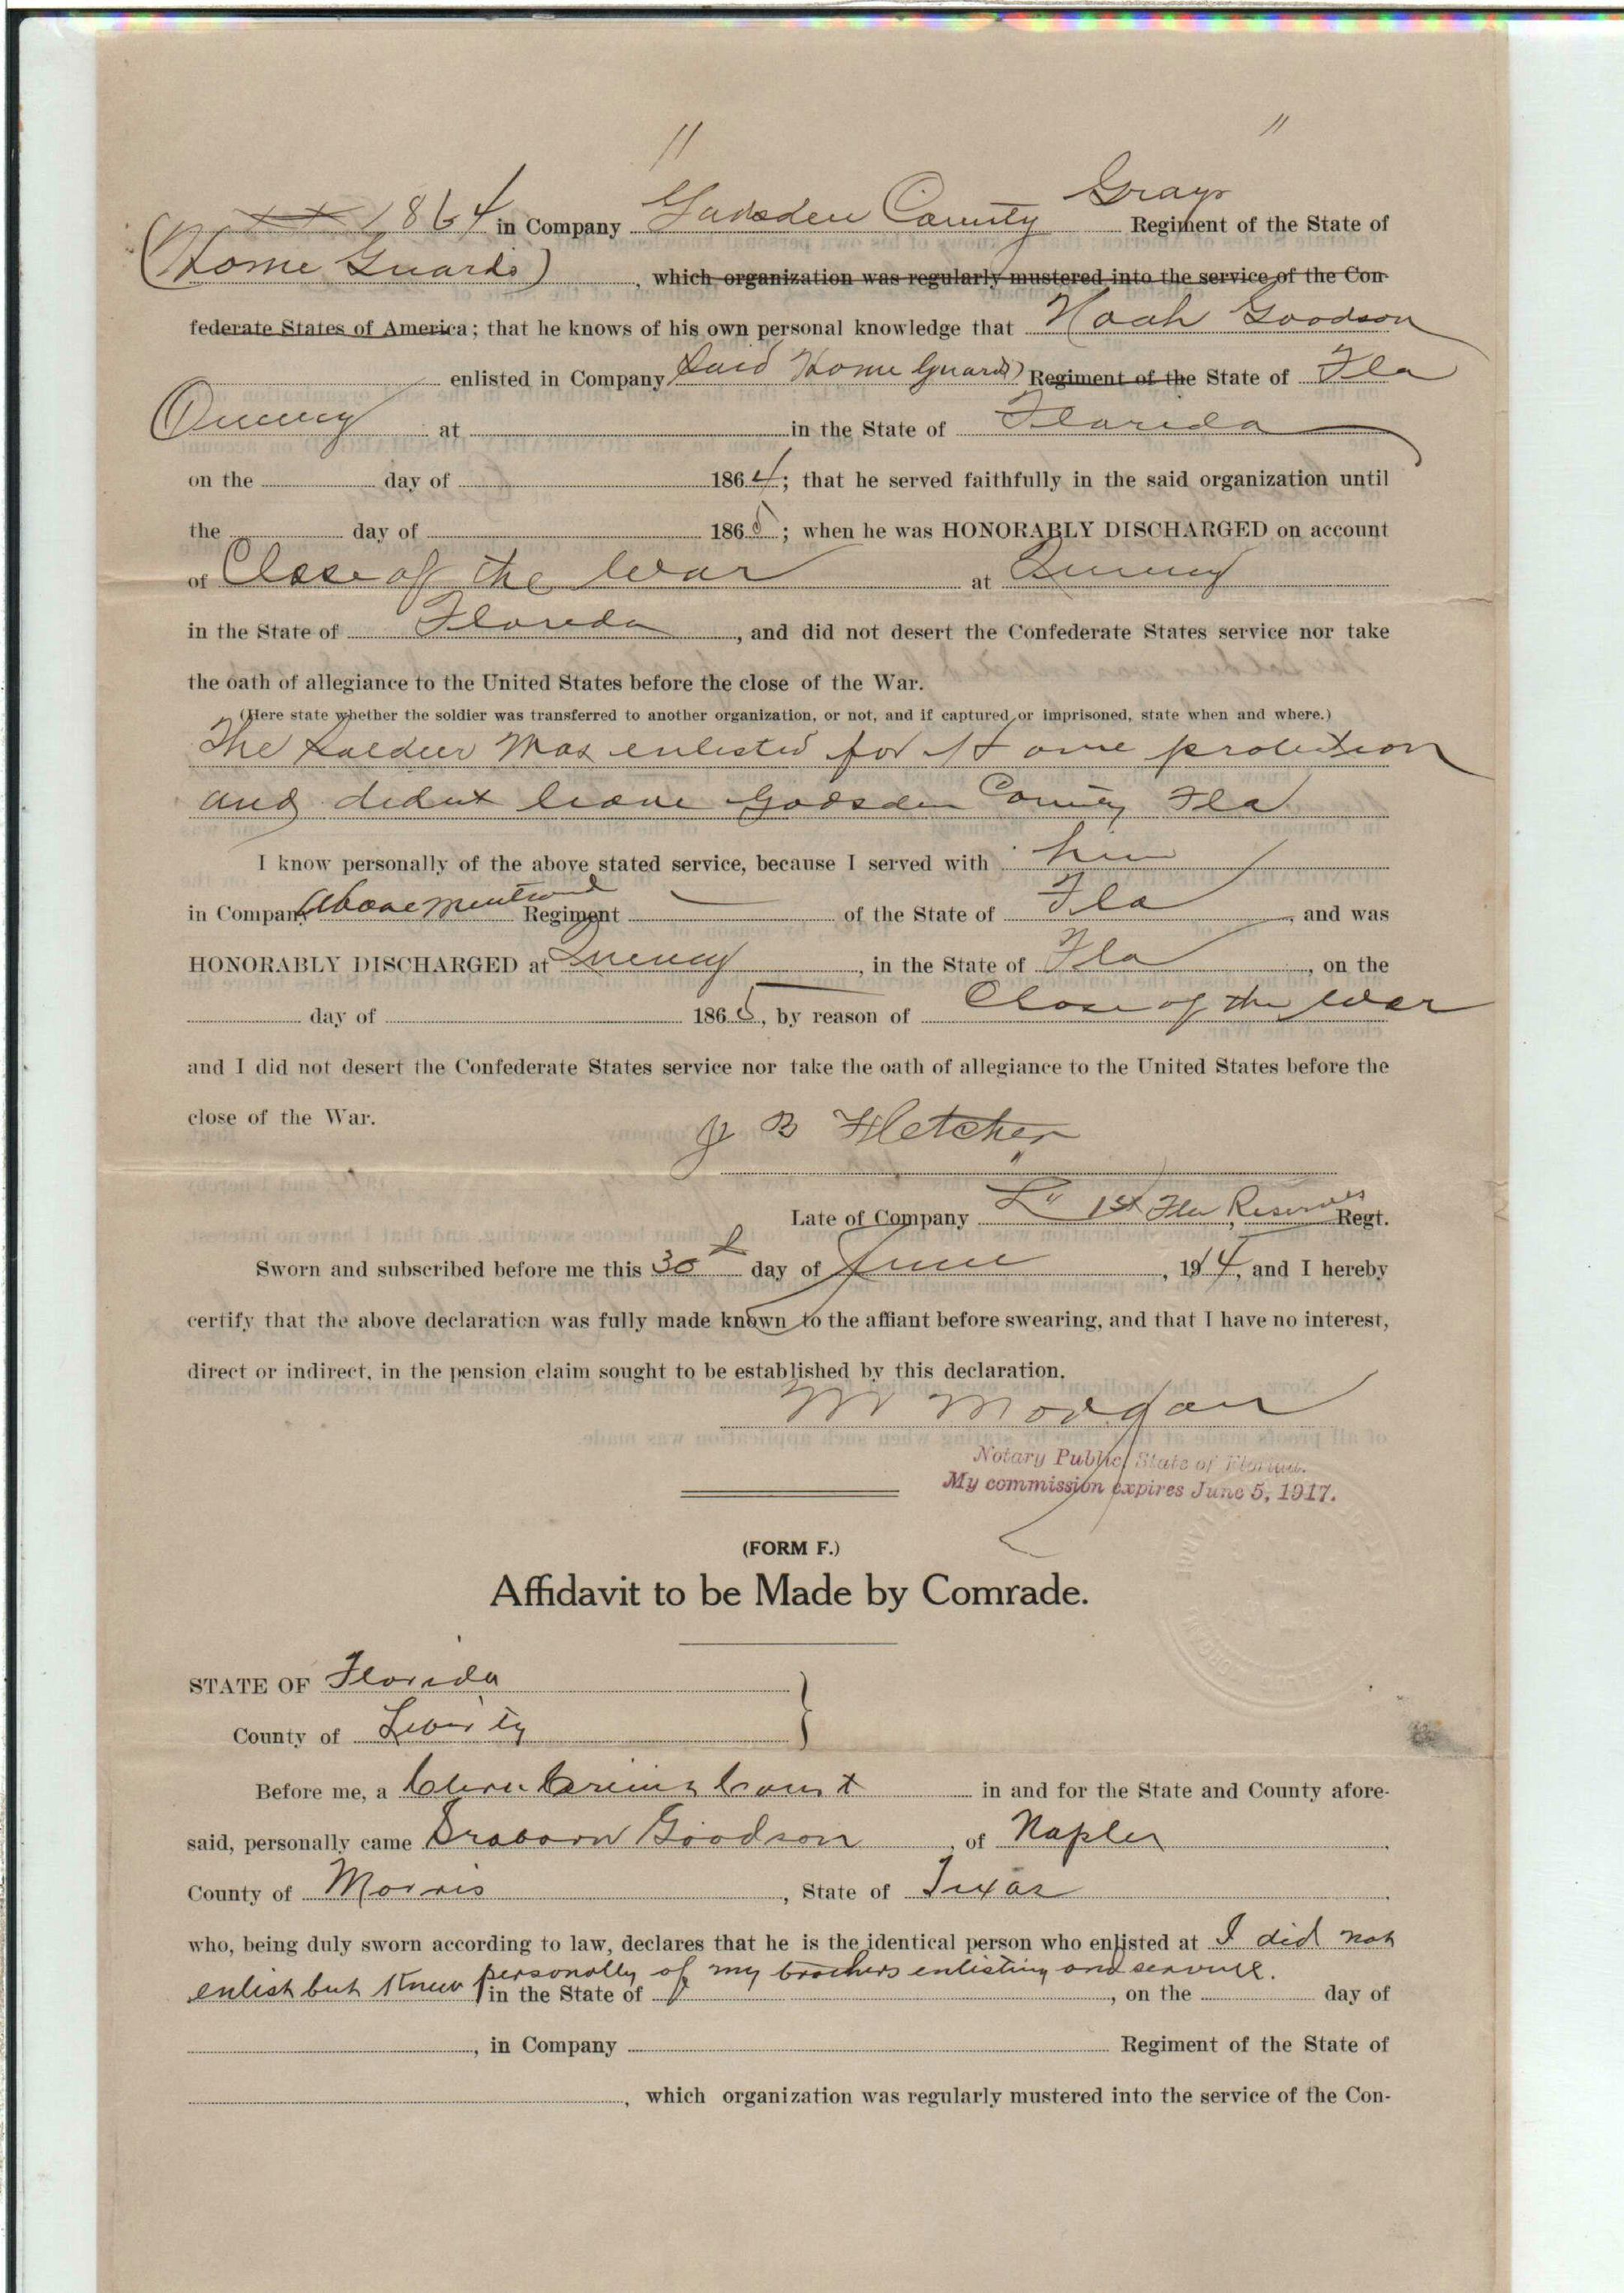 " "
1864 in Company Gadsden County Grays Regiment of the State of
(Home Guards) , which organization was regularly mustered into the service of the Con-
federate States of America; that he knows of his own personal knowledge that Noah Goodson
enlisted in Company Said Home Guards) Regiment of the State of Fla
Quincy at in the State of Florida
on the day of 1864; that he served faithfully in the said organization until
the day of 1865; when he was HONORABLY DISCHARGED on account
of Close of the War at Quincy
in the State of Florida, and did not desert the Confederate States service nor take
the oath of allegiance to the United States before the close of the War.
(Here state whether the soldier was transferred to another organization, or not, and if captured or imprisoned, state when and where.)
The Soldier Was enlisted for Home protection
and didnt leave Gadsden County Fla
I know personally of the above stated service, because I served with him
in Company above mentioned Regiment of the State of Fla, and was
HONORABLY DISCHARGED at Quincy, in the State of Fla, on the
day of 1865, by reason of Close of the War
and I did not desert the Confederate States service nor take the oath of allegiance to the United States before the
close of the War.
J B Fletcher
Late of Company 1st Fla Reserves Regt.
Sworn and subscribed before me this 30 day of June, 1914, and I hereby
certify that the above declaration was fully made known to the affiant before swearing, and that I have no interest,
direct or indirect, in the pension claim sought to be established by this declaration.
M Morgan
Notary Public, State of Florida.
My commission expires June 5, 1917.
(FORM F.)
Affidavit to be Made by Comrade.
STATE OF Florida
County of Liberty
Before me, a Court in and for the State and County afore-
said, personally came Goodson, of Naples
County of Morris, State of Texas
who, being duly sworn according to law, declares that he is the identical person who enlisted at I did not
enlist but knew personally of my brothers enlisting and service.
in the State of , on the day of
, in Company Regiment of the State of
, which organization was regularly mustered into the service of the Con-